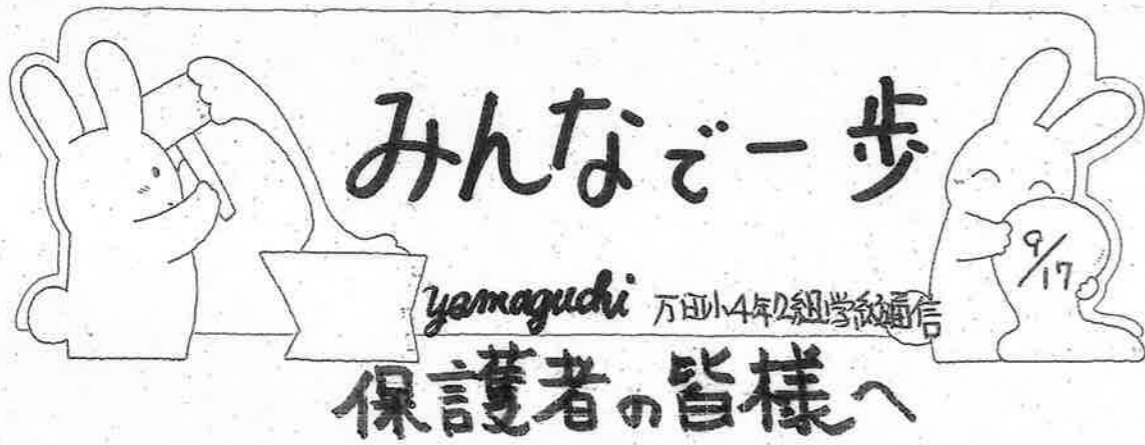 みんなで一歩
9/17
yamaguchi 万田小4年2組学級通信
保護者の皆様へ